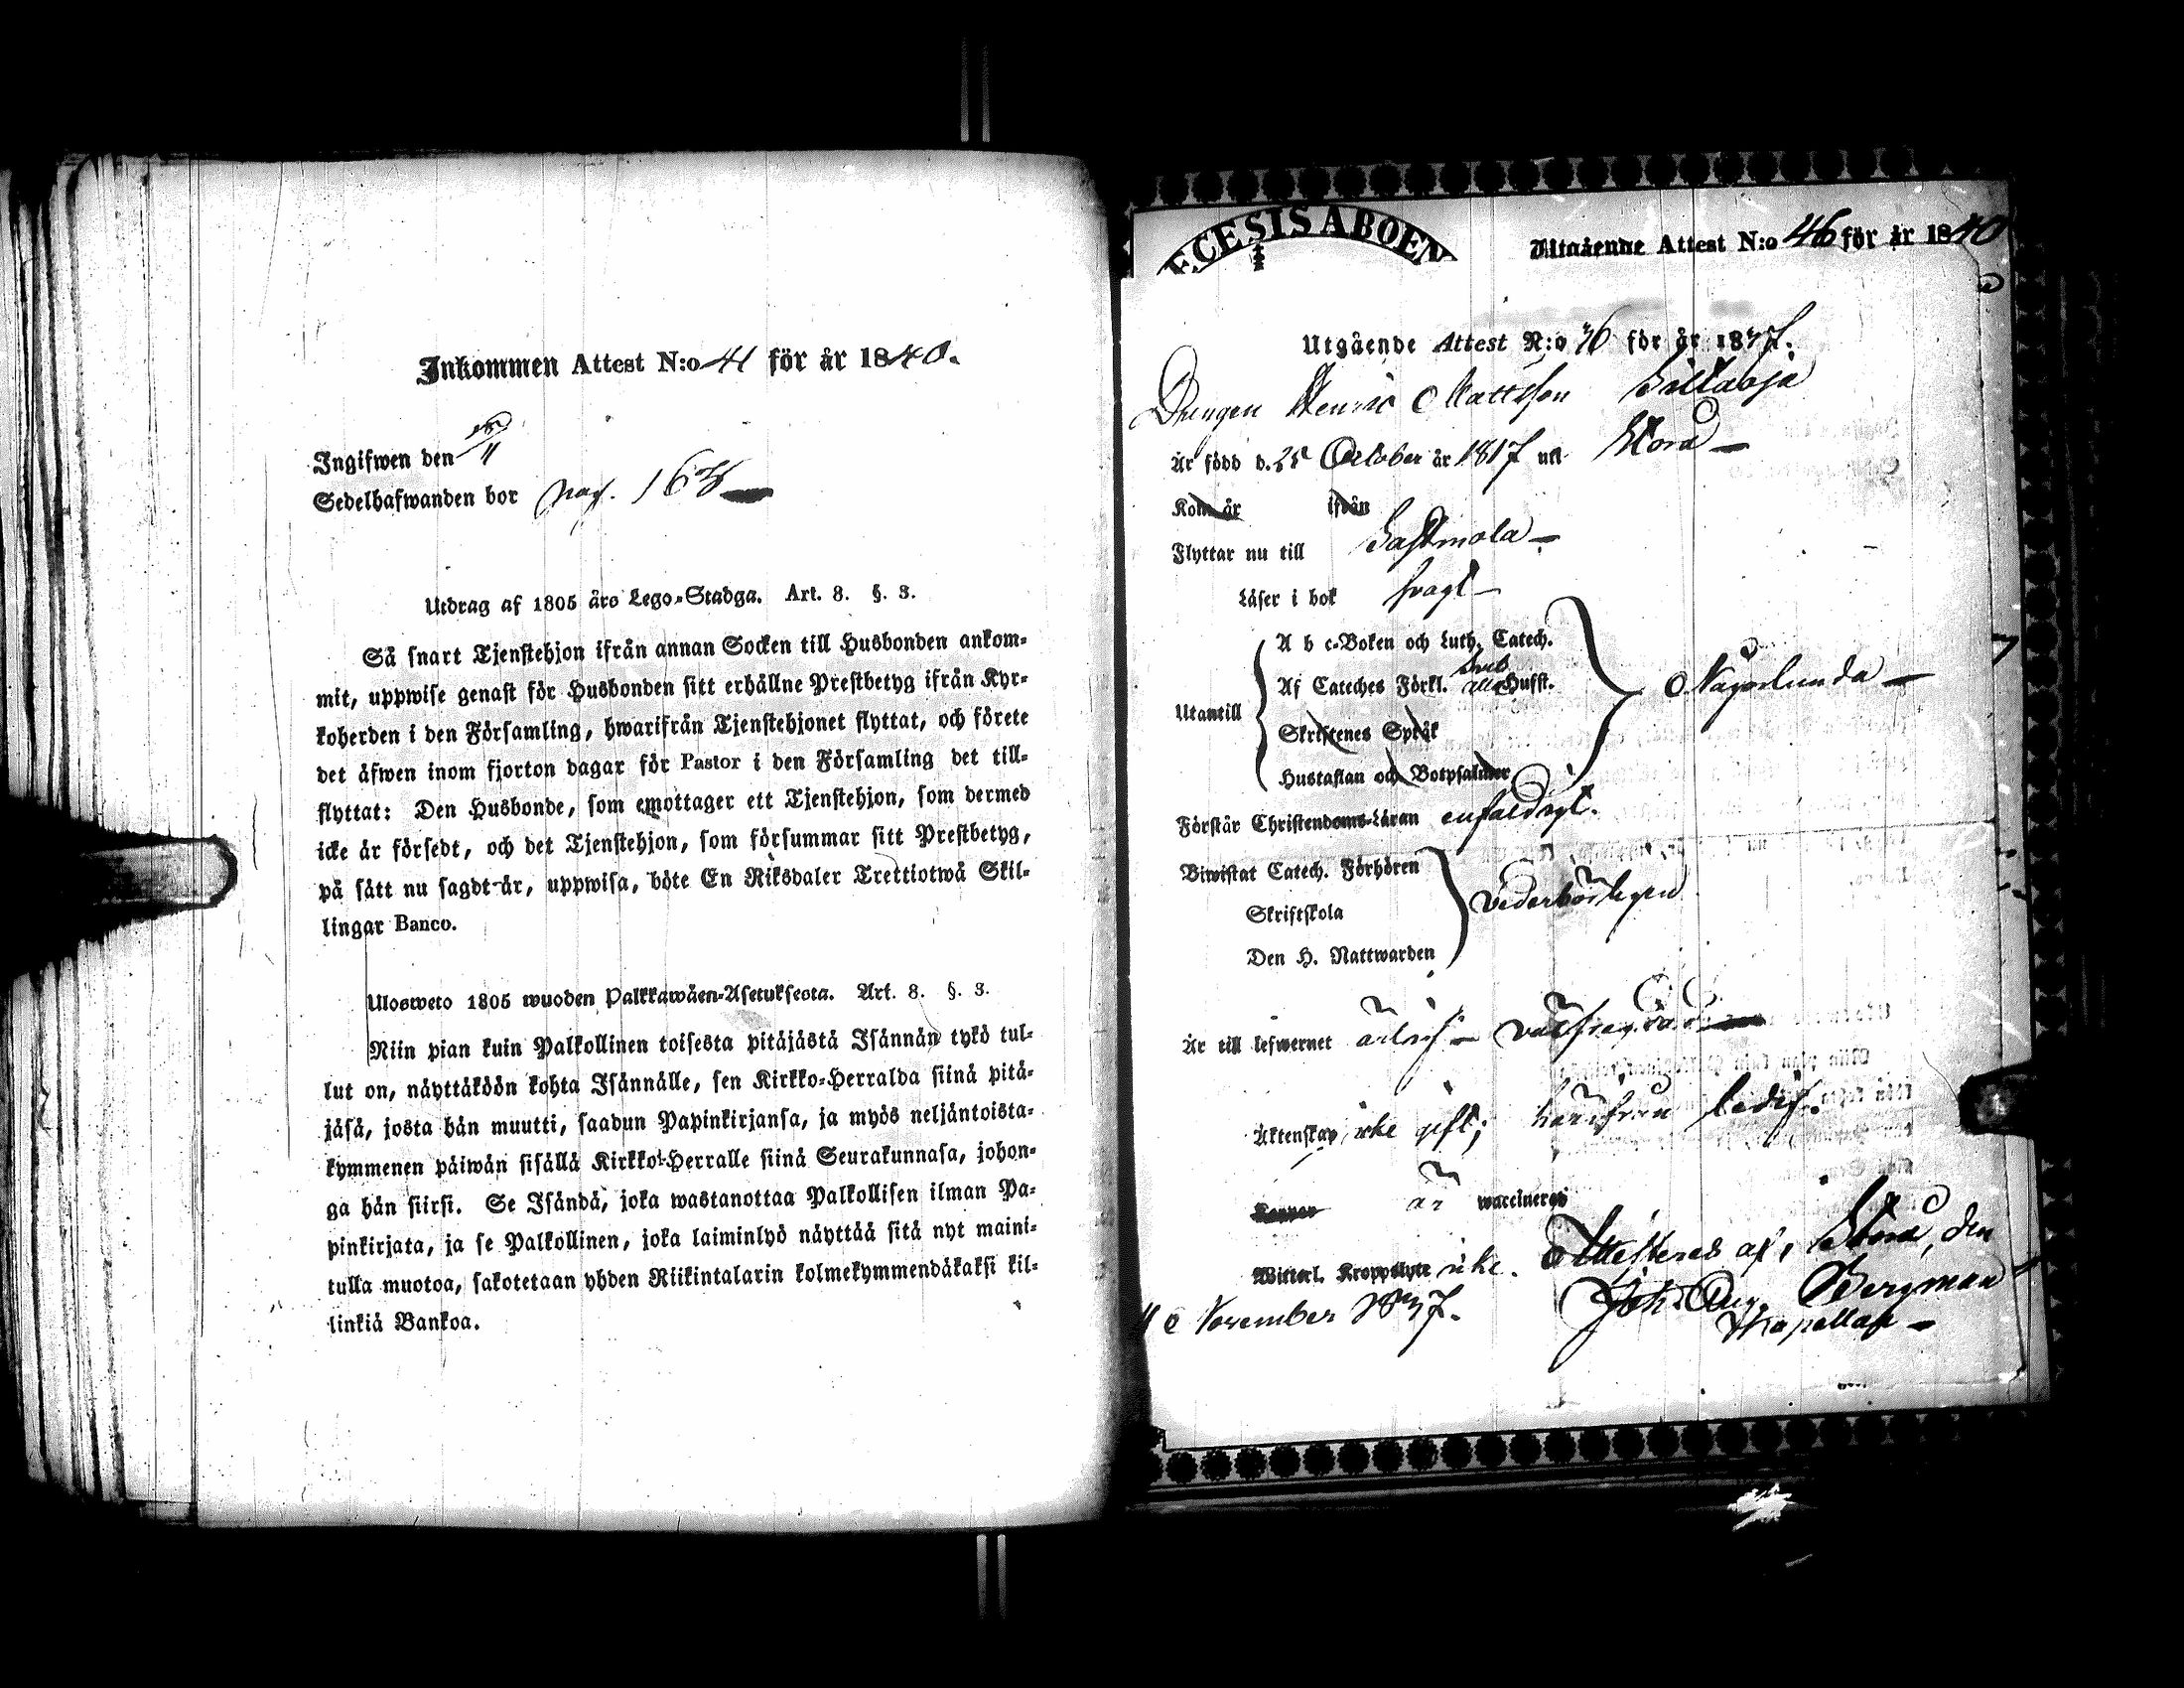 Inkommen Attest N:o 41 för år 1840.
Ingifwen den 18/11
Sedelhafwanden bor pag. 163
Utdrag af 1805 års Lego-Stadga. Art. 8. §. 3.
Så snart Tjenstehjon ifrån annan Socken till Husbonden ankom-
mit, uppwise genast för Husbonden sitt erhållne Prestbetyg ifrån Kyr-
koherden i den Församling, hwarifrån Tjenstehjonet flyttat, och förete
det äfwen inom fjorton dagar för Pastor i den Församling det till-
flyttat: Den Husbonde, som emottager ett Tjenstehjon, som dermed
icke är försedt, och det Tjenstehjon, som försummar sitt Prestbetyg,
på sätt nu sagdt är, uppwisa, böte En Riksdaler Trettiotwå Skil-
lingar Banco.
Ulosweto 1805 wuoden Palkkawäen-Asetuksesta. Art. 8. §. 3.
Niin pian kuin Palkollinen toisesta pitäjästä Isännän tykö tul-
lut on, näyttäköön kohta Isännälle, sen Kirkko-Herralda siinä pitä-
jäsä, josta hän muutti, saadun Papinkirjansa, ja myös neljäntoista-
kymmenen päiwän sisällä Kirkko-Herralle siinä Seurakunnasa, johon-
ga hän siirsi. Se Isändä, joka wastanottaa Palkollisen ilman Pa-
pinkirjata, ja se Palkollinen, joka laiminlyö näyttää sitä nyt maini-
tulla muotoa, sakotetaan yhden Riikintalarin kolmekymmendäkaksi kil-
linkiä Bankoa.
ECESIS ABOEN
Utgående Attest N:o 46 för år 1840
Utgående Attest N:o 46 för år 1837.
Drengen Henric Mattsson
Är född d. 25 October år 1817 uti
Kom år ifrån
Flyttar nu till Sastmola
Läser i bok svagt
A b c-Boken och Luth. Catech.
Af Cateches Förkl. alla Hufst.
Utantill
Någorlunda
Skriftenes Språk
Hustaflan och Botpsalmer
Förstår Christendoms-Läran enfaldigt.
Biwistat Catech. Förhören
Skriftskola
vederbörligen
Den H. Nattwarden
Är till lefwernet ärlig välfrejdad
Äktenskap icke gift; härifrån ledig.
Koppor är waccinerad
Witterl. Kroppslyte icke. Attesteras af, den
November 1837. Joh. Aug. Bergman
Kapellan